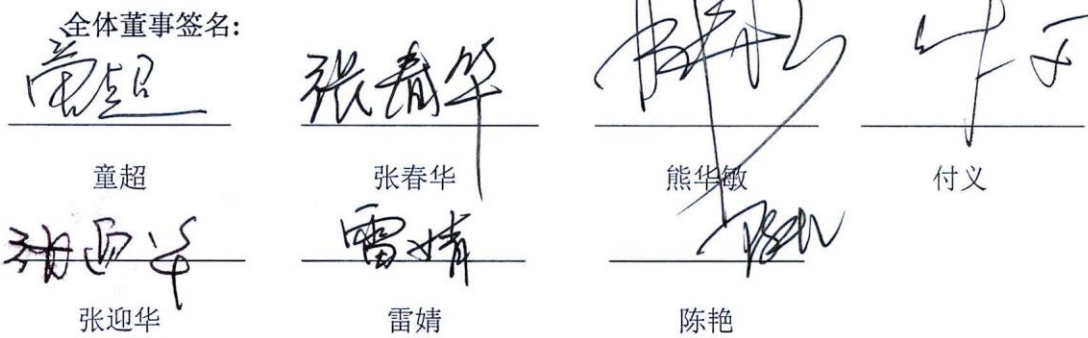 全体董事签名:
童超 张春华
童超 张春华 熊华敏 付义
雷婧
张迎华 雷婧 陈艳